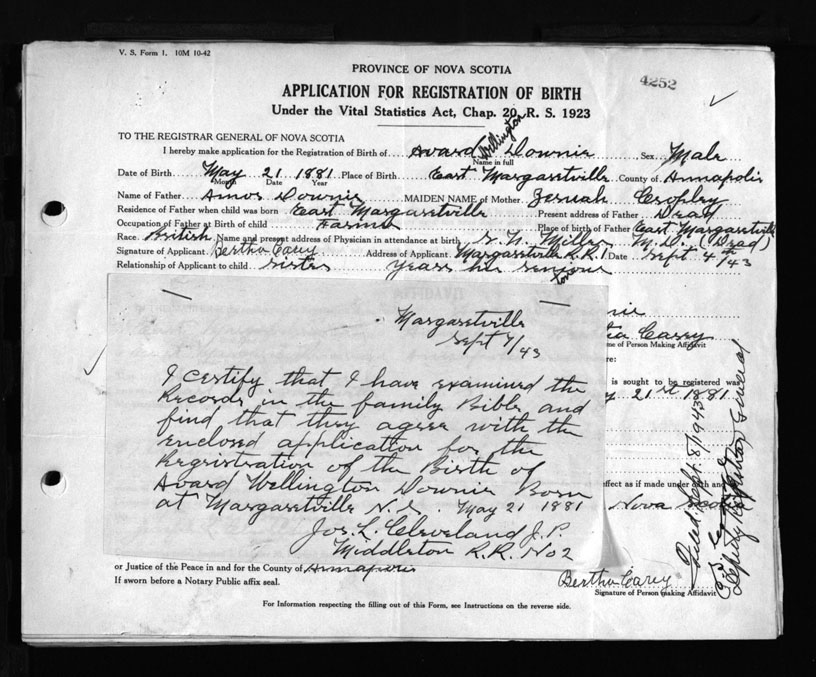 V. S. Form 1. 10M 10-42
PROVINCE OF NOVA SCOTIA
4252
APPLICATION FOR REGISTRATION OF BIRTH
Under the Vital Statistics Act, Chap. 20, R. S. 1923
TO THE REGISTRAR GENERAL OF NOVA SCOTIA
I hereby make application for the Registration of Birth of Avard Wellington Downie Sex Male
Name in full
Date of Birth May 21 1881 Place of Birth East Margaretville County of Annapolis
Month Date Year
Name of Father Amos Downie MAIDEN NAME of Mother Cropley
Residence of Father when child was born East Margaretville Present address of Father Dead
Occupation of Father at Birth of child Farmer Place of birth of Father East Margaretville
Race British Name and present address of Physician in attendance at birth Miller M.D. (Dead)
Signature of Applicant Bertha Carey Address of Applicant Margaretville R.R.1 Date Sept 4th/43
Relationship of Applicant to child Sister years his senior
ten
Margaretville
Sept 7/43
I certify that I have examined the
Records in the family Bible and
find that they agree with the
enclosed application for the
Registration of the Birth of
Avard Wellington Downie Born
at Margaretville N.S. May 21 1881
Jos. L. Cleveland J.P.
Middleton R.R. No 2
nie
Carey
me of Person Making Affidavit
re:
is sought to be registered was
21st 1881
effect as if made under oath and
Nova Scotia
or Justice of the Peace in and for the County of Annapolis
If sworn before a Notary Public affix seal.
Bertha Carey
Signature of Person making Affidavit
For Information respecting the filling out of this Form, see Instructions on the reverse side.
Filed Sept. 8/1943
Deputy Registrar General